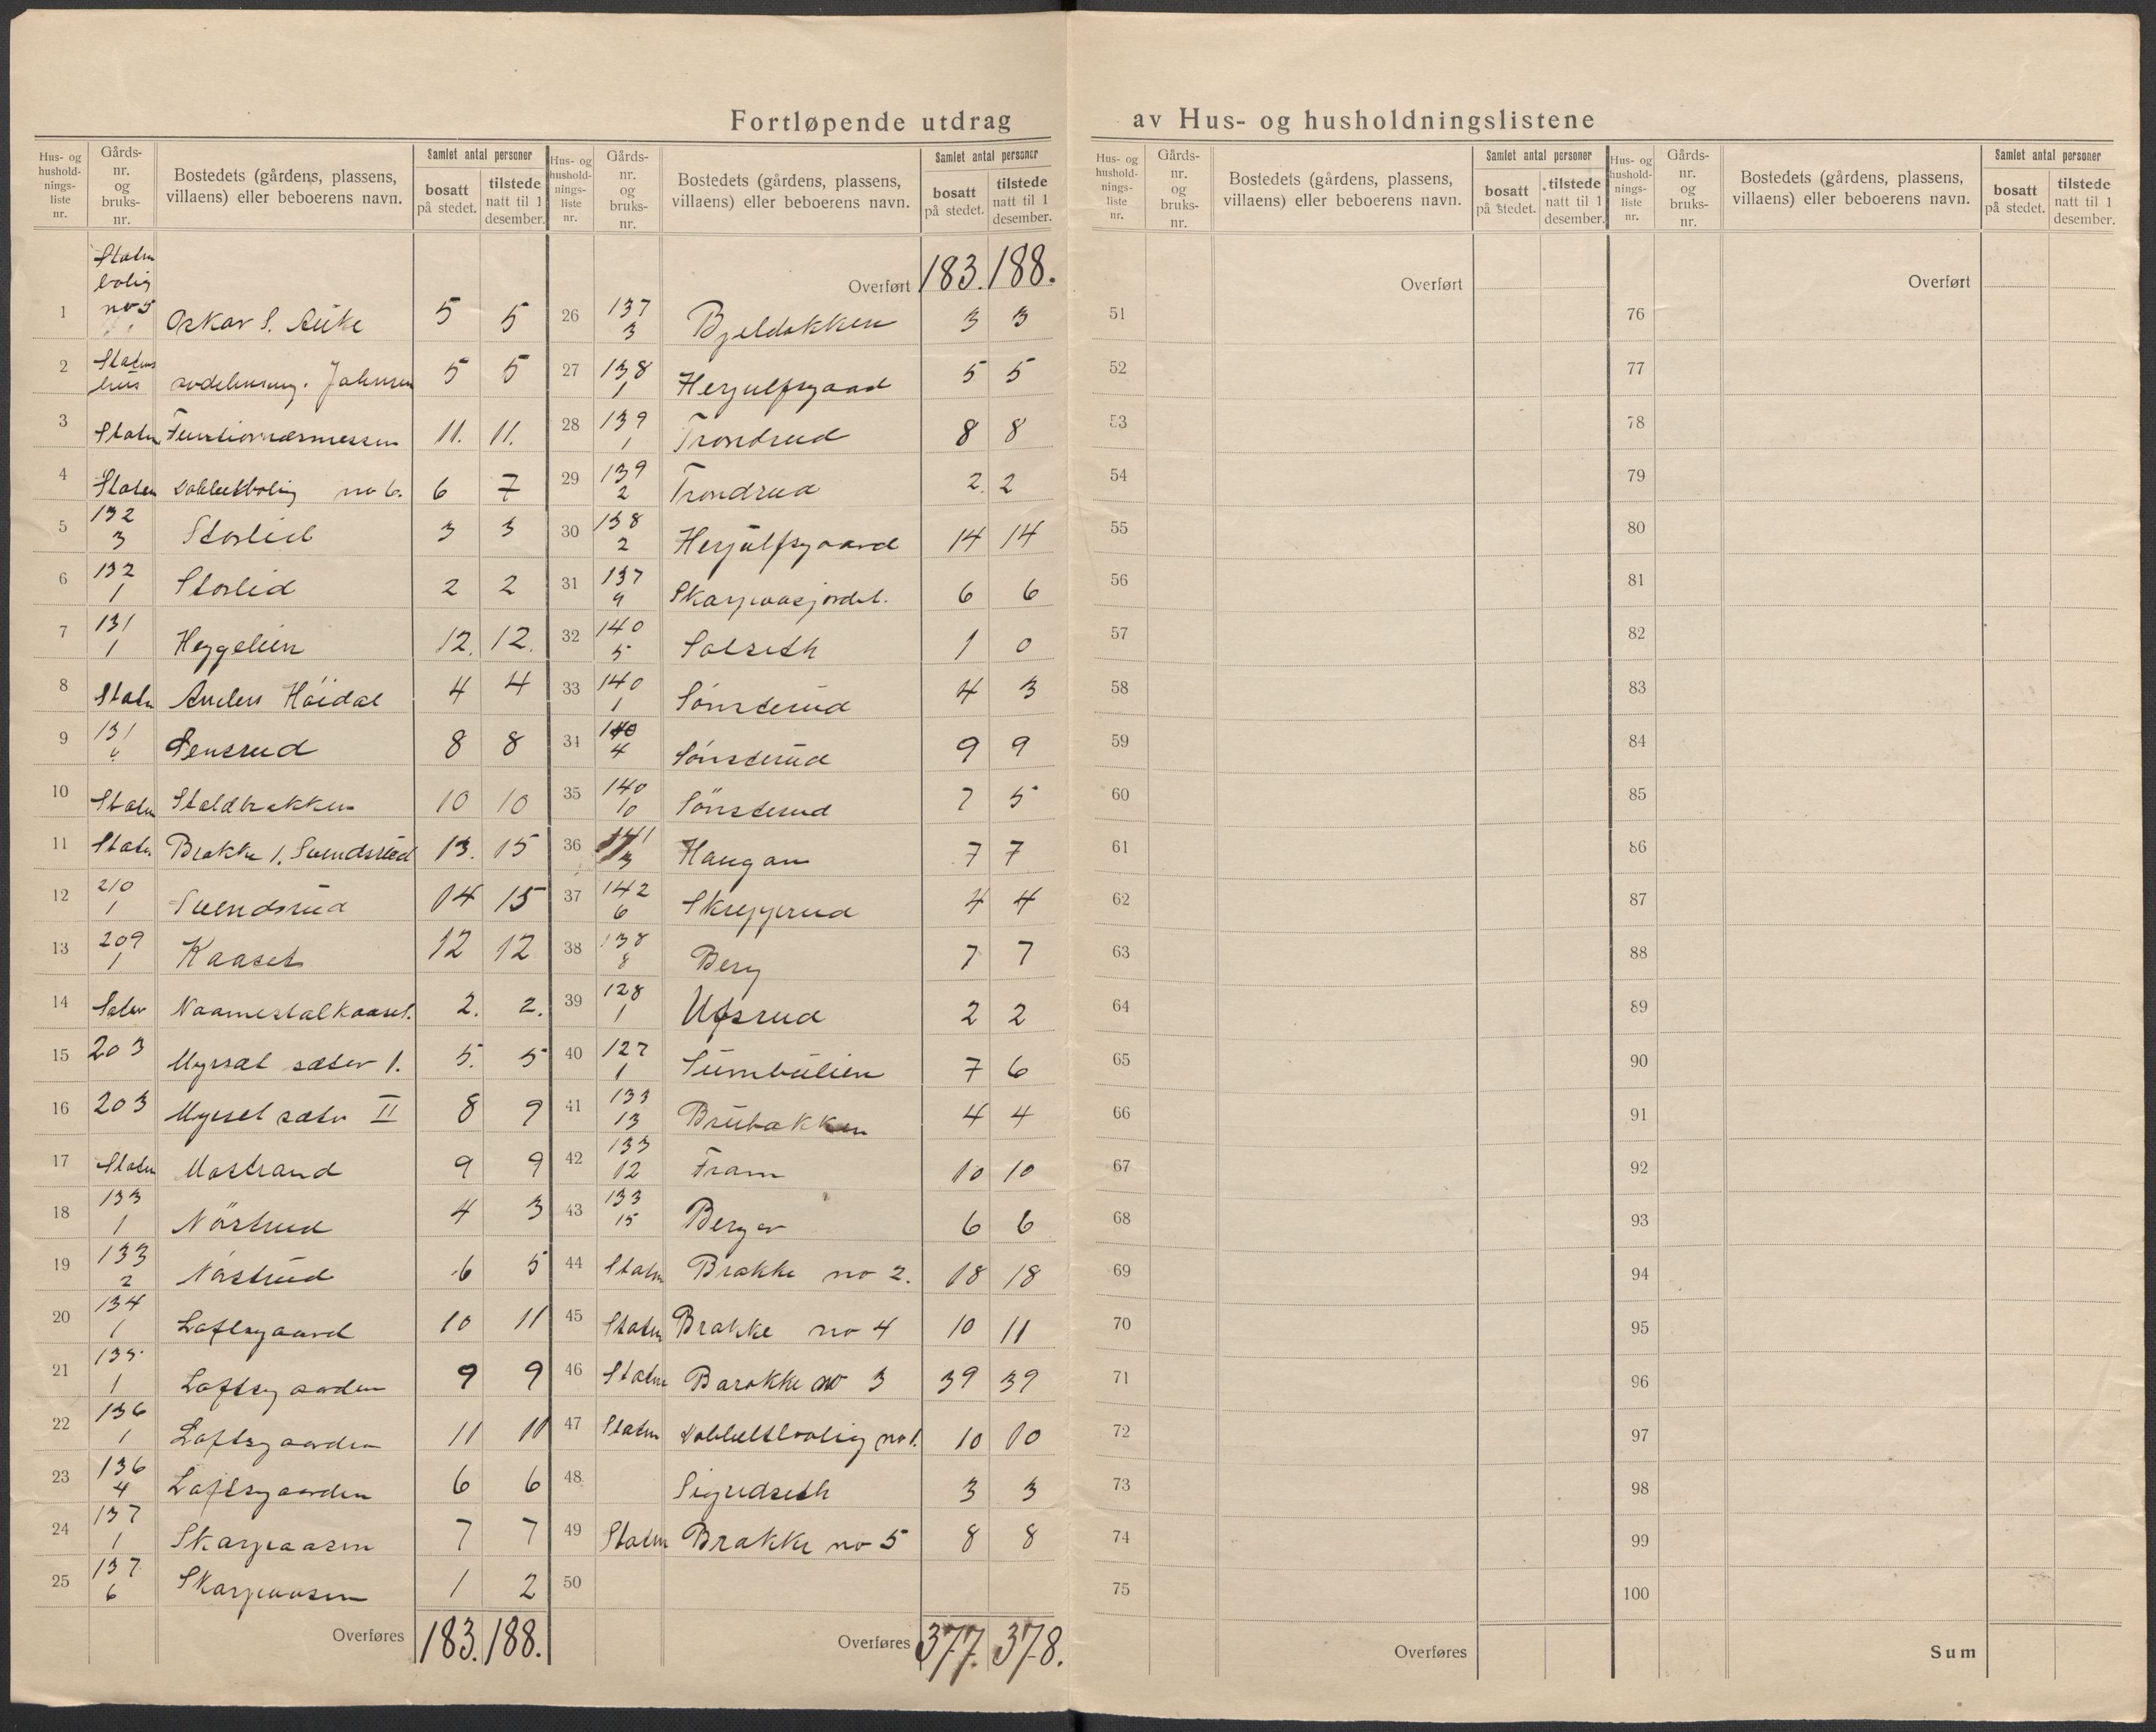 Fortløpende utdrag av Hus- og husholdningslistene
Hus- og husholdnings-liste nr. Gårds-nr. og bruks-nr. Bostedets (gårdens, plassens, villaens) eller beboerens navn. Samlet antal personer bosatt på stedet. tilstede natt til 1 desember.
Staten bolig no 5
1 Oskar S. 5 5
2 Statens hus avdelingsing. Johnsen 5 5
3 Staten Funktionærmessen 11. 11.
4 Staten Dobbeltbolig no 6. 6 7
5 132 3 Storlid 3 3
6 132 1 Storlid 2 2
7 131 1 Heggelien 12. 12.
8 Staten Anders Höidal 4 4
9 131 Sensrud 8 8
10 Staten Staldbakken 10 10
11 Staten Brakke 1. Svendsrud 13. 15
12 210 1 Svendsrud 14 15
13 209 1 Kaaset 12 12
14 Naamestalkaaset. 2. 2.
15 203 Myrsæt sæter 1. 5. 5
16 203 Myrset sæter II 8 9
17 Staten Mostrand 9 9
18 133 1 Nörstrud 4 3
19 133 2 Nöstrud 6 5
20 134 1 Loftsgaard 10 11
21 135 1 Loftsgaarden 9 9
22 136 1 Loftsgaarden 11 11
23 136 4 Loftsgaarden 6 6
24 137 1 Skarpaasen 7 7
25 137 6 Skarpaasen 1 2
Overføres 183. 188.
Hus- og hushold-nings-liste nr. Gårds-nr. og bruks-nr. Bostedets (gårdens, plassens, villaens) eller beboerens navn. Samlet antal personer bosatt på stedet. tilstede natt til 1 desember.
Overført 183. 188.
26 137 3 Bjeldokken 3 3
27 138 1 Herjulfsgaard 5 5
28 139 1 Trondrud 8 8
29 139 2 Trondrud 2. 2
30 138 2 Herjulfsgaard 14 14
31 137 9 Skarpaasjordet. 6 6
32 140 5 Solseth 1 0
33 140 1 Sønsterud 4 3
34 140 4 Sønsterud 9 9
35 140 10 Sönsterud 7 5
36 141 3 Haugan 7 7
37 142 6 Skrepperud 4 4
38 138 8 Berg 7 7
39 128 1 Ufsrud 2 2
40 127 1 Sumbulien 7 6
41 133 13 Brubakken 4 4
42 133 12 Fram 10 10
43 133 15 Berger 6 6
44 Staten Brakke no 2. 18 18
45 Staten Brakke no 4 10 11
46 Staten Barakke no 3 39 39
47 Staten Dobbeltbolig no 1. 10 10
48 Sigridseth 3 3
49 Staten Brakke no 5 8 8
50
Overføres 377. 378.
Hus- og hushold-nings-liste nr. Gårds-nr. og bruks-nr. Bostedets (gårdens, plassens, villaens) eller beboerens navn. Samlet antal personer bosatt på stedet. tilstede natt til 1 desember.
Overført
51
52
53
54
55
56
57
58
59
60
61
62
63
64
65
66
67
68
69
70
71
72
73
74
75
Overføres
Hus- og hushold-nings-liste nr. Gårds-nr. og bruks-nr. Bostedets (gårdens, plassens, villaens) eller beboerens navn. Samlet antal personer bosatt på stedet. tilstede natt til 1 desember.
Overført
76
77
78
79
80
81
82
83
84
85
86
87
88
89
90
91
92
93
94
95
96
97
98
99
100
Sum